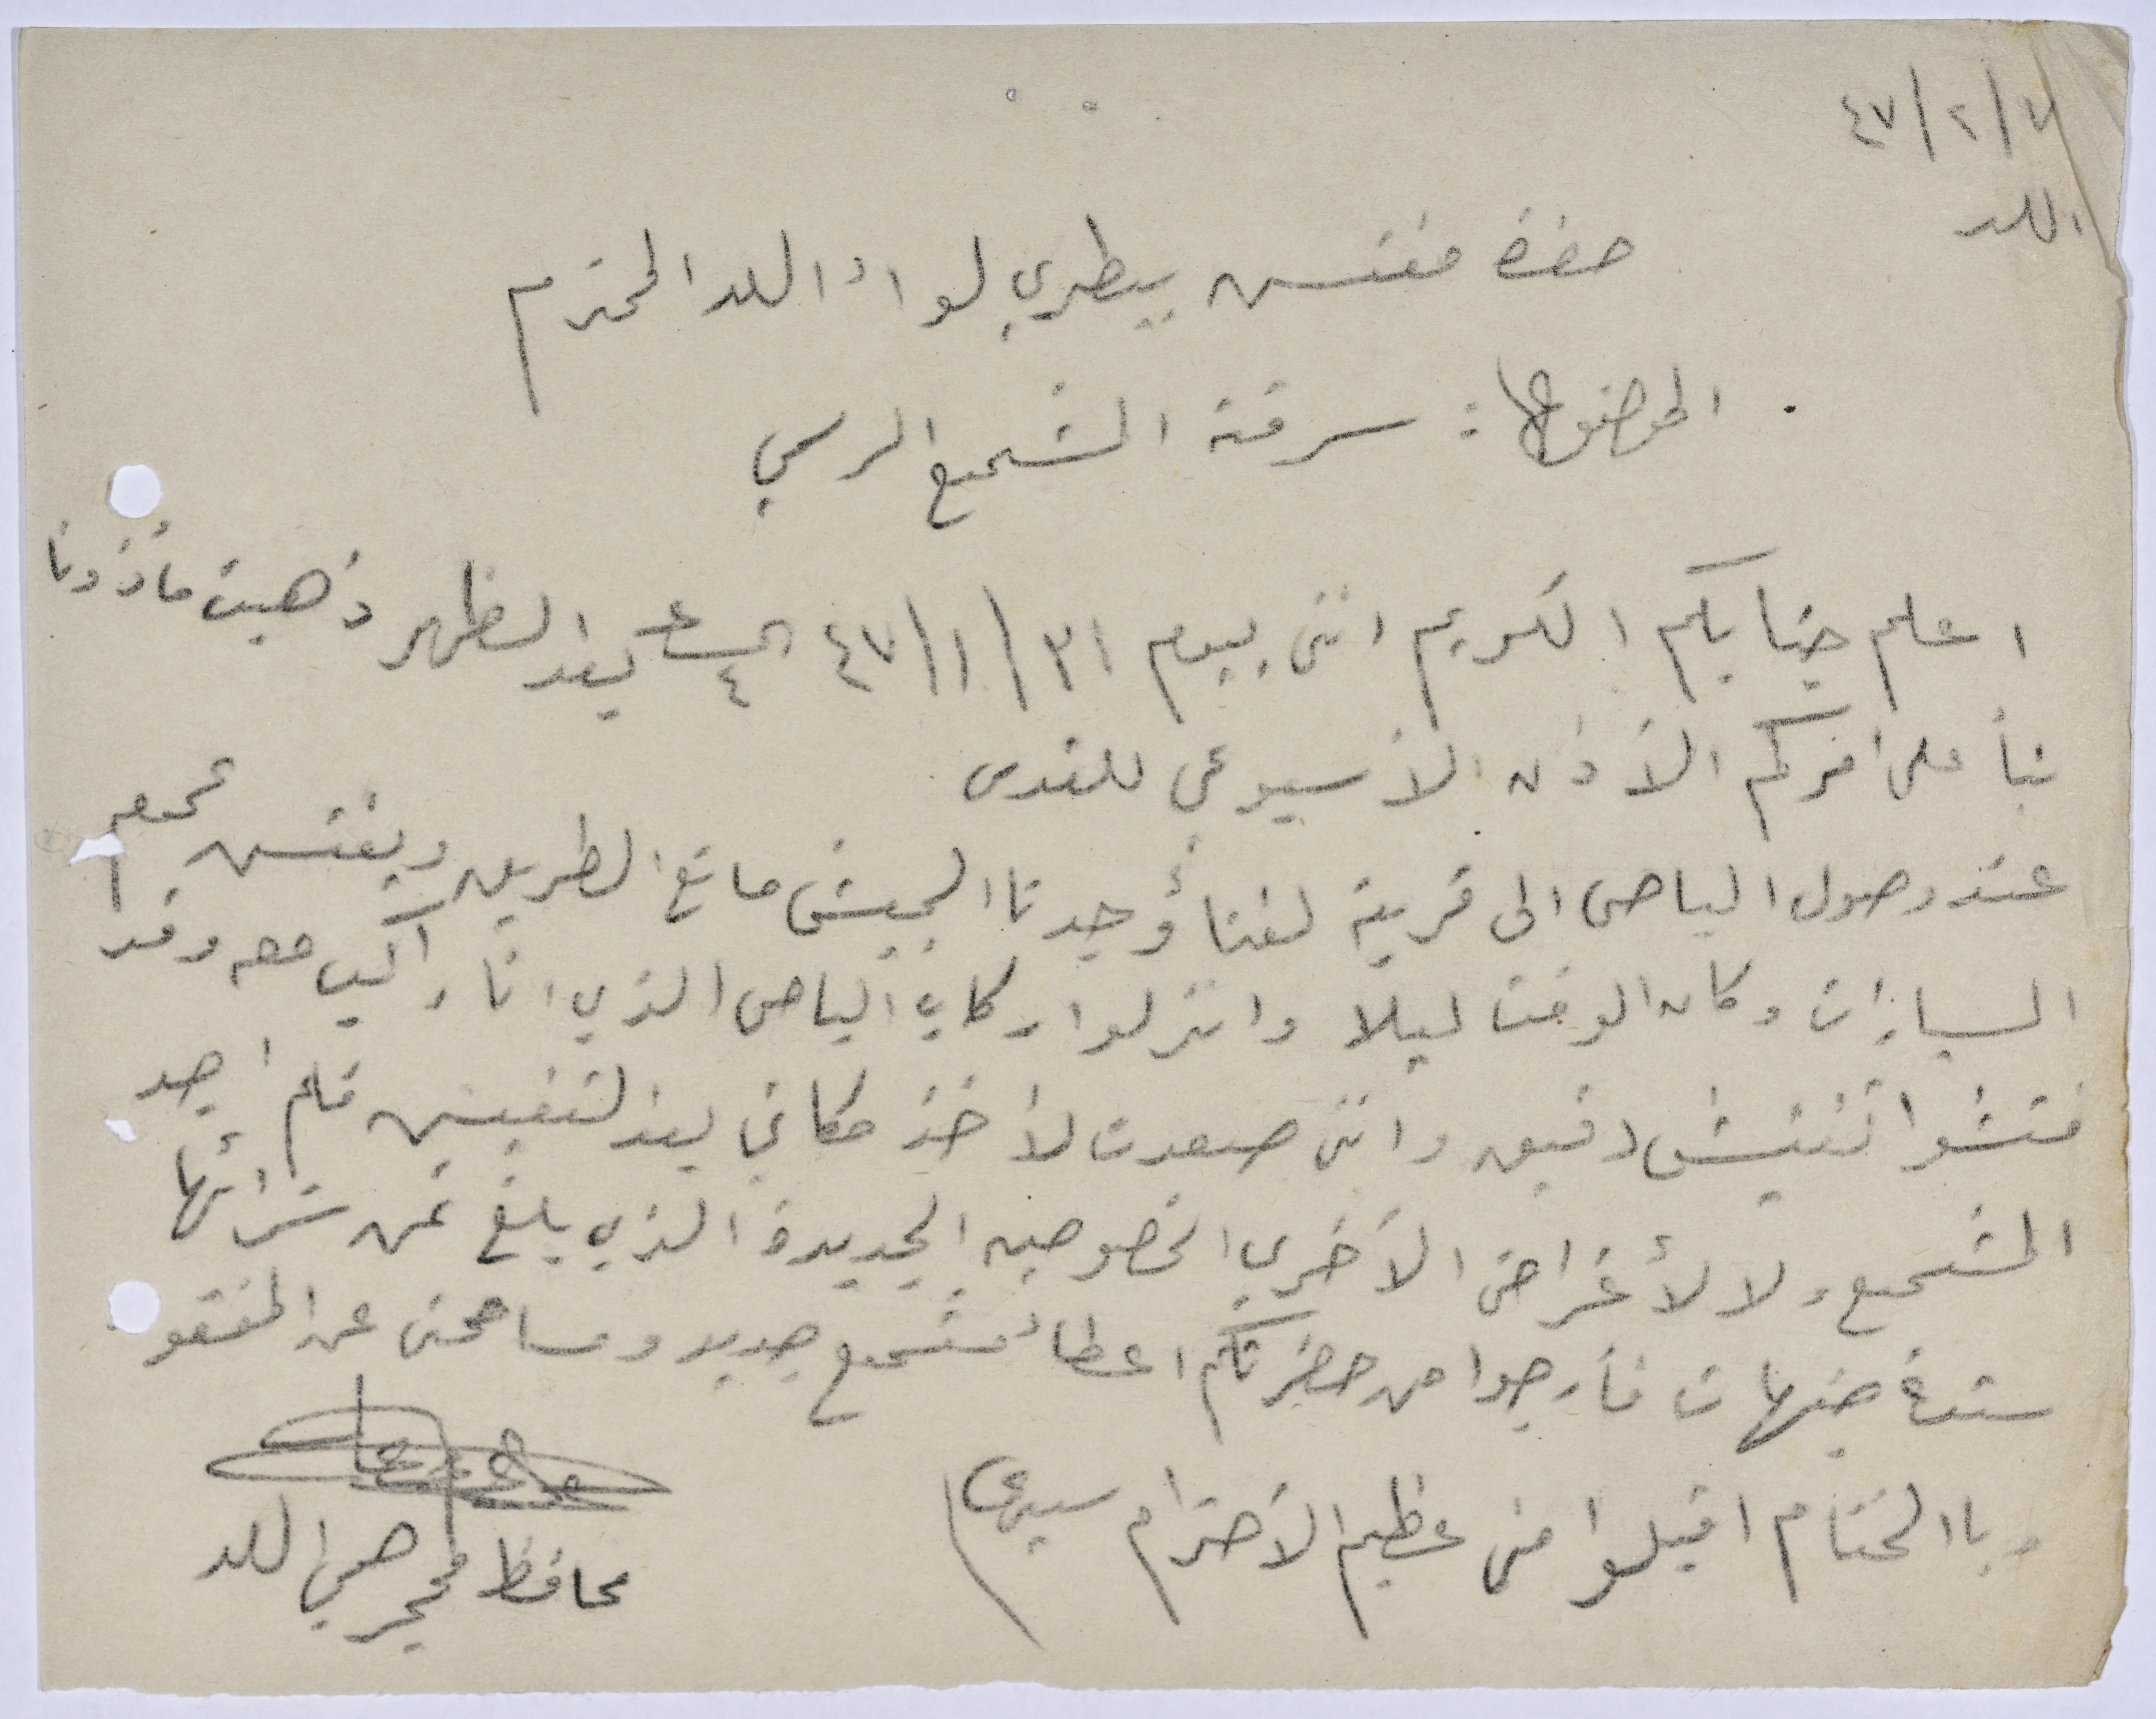 ٧/٢/٤٧
اللد
حضرة مفتش بيطري لواء اللد المحترم
الموضوع: سرقة المشمع الرسمي
اعلم جنابكم الكريم انني بيوم ٣١/١/٤٧ الساعة ٤ بعد الظهر ذهبت مأذونا
بنأ على امركم الأذن الأسبوعي للقدس
عند وصول الباص الى قرية لفتا وجدنا الجيش مانع الطريق ويفتش جميع
السيارات وكان الوقت ليلا وانزلوا ركاب الباص الذي انا راكب معه وقد
فتشوا تفتيش دقيق وانني صعدت لأخذ مكاني بعد التفتيش فلم اجد
المشمع ولا الأغراض الأخرى الخصوصيه الجديدة الذي يبلغ ثمن شرائها
ستة جنيهات فأرجوا من حضرتكم اعطاء مشمع جديد ومسامحتى عن المفقود
وبا الختام اقبلوا مني عظيم الأحترام سيدي
محافظ محجر صحي اللد